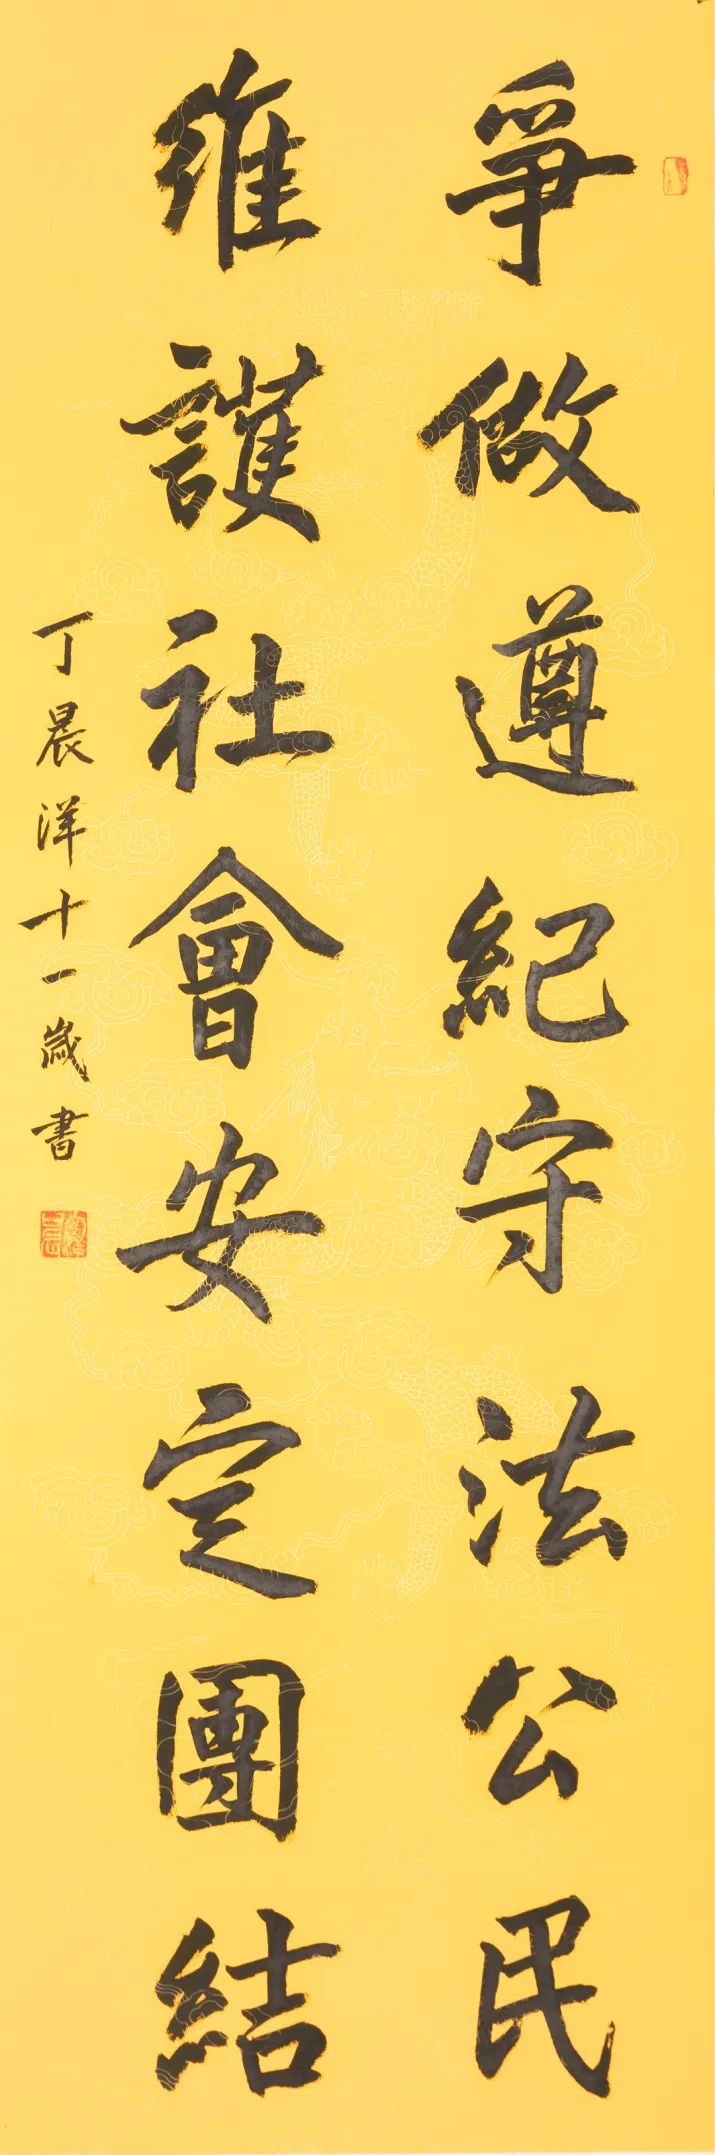 爭做遵紀守法公民
維護社會安定團結
丁晨洋十一歲書